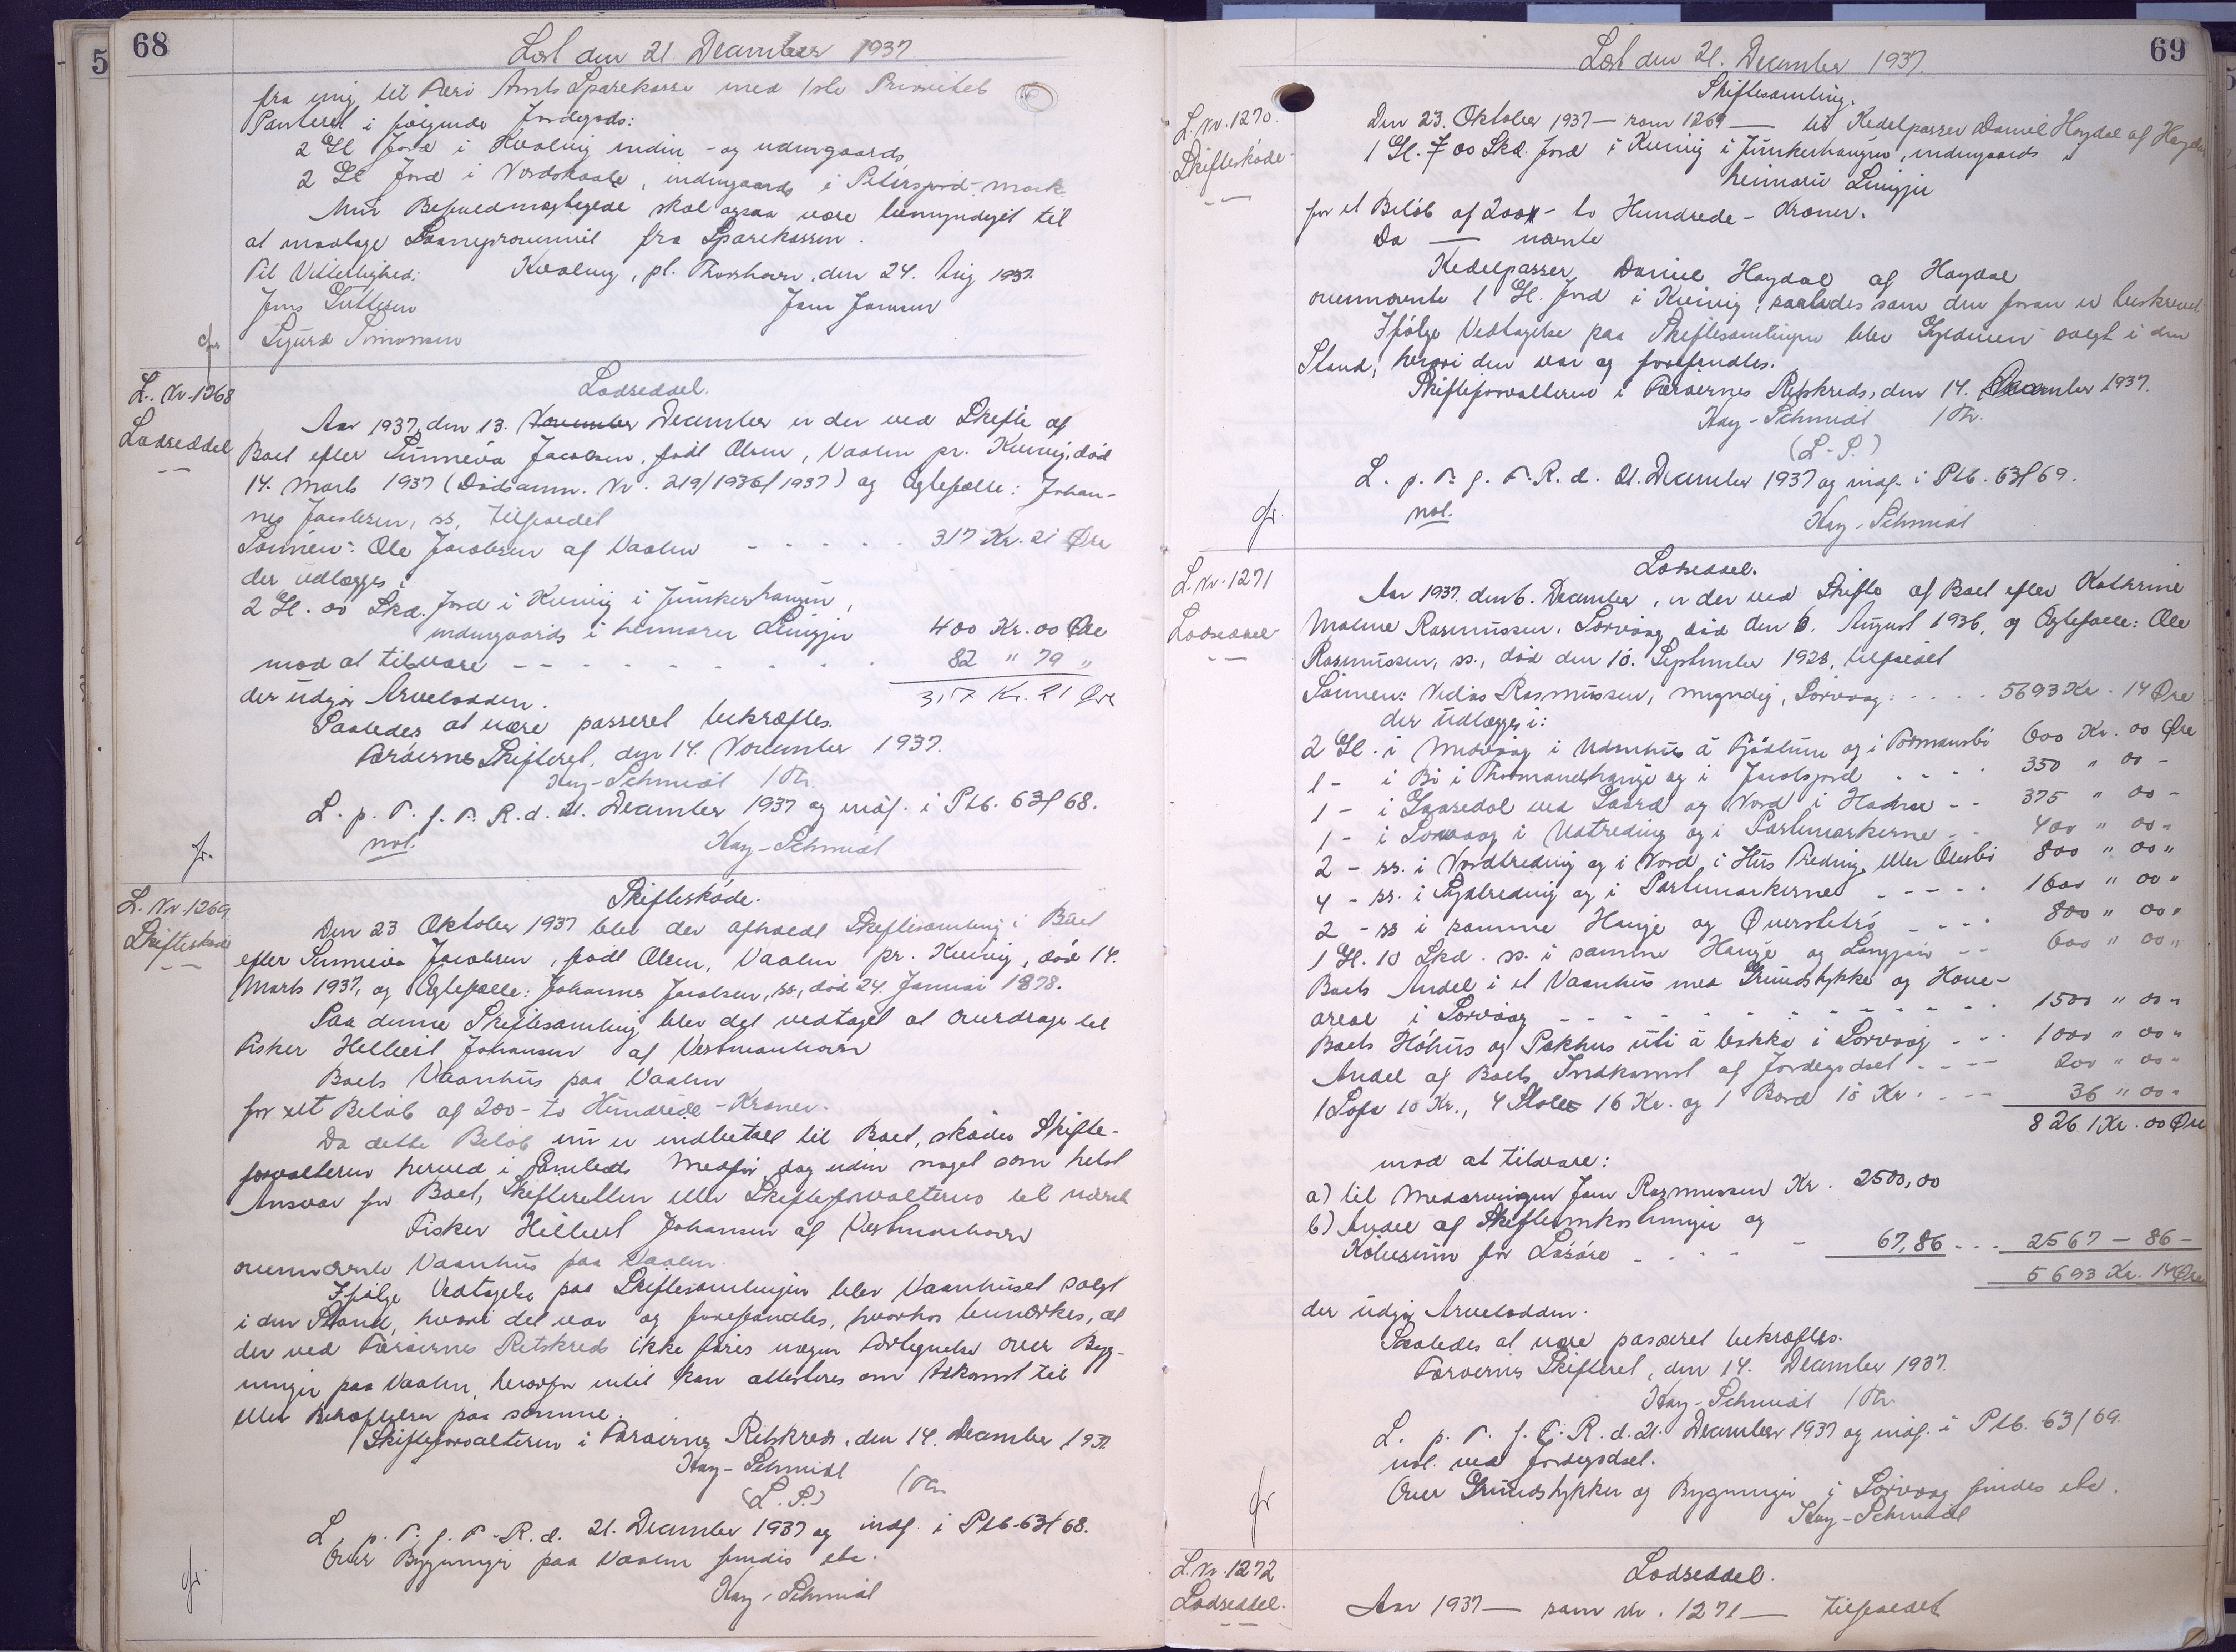 68
Læst den 21. December 1937.
fra mig til Færø Amts Sparekasse med 1ste Prioritets
Panteret i følgende Jordegods:
2 Gl Jord i Kvalvig inden- og udengaards,
2 Gl Jord i Nordskaale, indengaards i Petersjord-mark
Min Befuldmægtigede skal ogsaa være bemyndiget til
at modtage Laaneprovenuet fra Sparekassen.
Til Vitterlighed: Kvalvig, pl. Thorshavn, den 24. Aug 1937.
Jens
Sigurd Simonsen
L. Nr. 1268
Lodseddel
Lodseddel.
Aar 1937, den 13. November December er der ved Skifte af
Boet efter Sunneva Jacobsen, født Olsen, Vaalen pr. Kvivig, død
14. Marts 1937 (Dødsanm. Nr. 219/1936/1937) og Ægtefælle: Johan-
nes Jacobsen, ss, tilfaldet
Sønnen: Ole Jacobsen af Vaalen - - - - - 317 Kr. 21 Øre
der udlægges i
2 Gl. 00 Skd. Jord i Kvivig i Junkerhaugen,
indengaards i hennaru Lingjir 400 Kr. 00 Øre
mod at tilsvare - - - - - - - - 82 " 79 "
der udgør Arvelodden. 317 Kr. 21 Øre
Saaledes at være passeret bekræftes.
Færøernes Skifteret, den 14. November 1937.
Kay-Schmidt /Th.
L. p. T. f. F. R. d. 21. December 1937 og indf. i Ptb. 63f 68.
not. Kay-Schmidt
L. Nr. 1269
Skifteskøde
Skifteskøde.
Den 23. Oktober 1937 blev der afholdt Skiftesamling i Boet
efter Sunneva Jacobsen, født Olsen, Vaalen pr. Kvivig, død 14.
Marts 1937, og Ægtefælle: Johannes Jacobsen, ss, død 24. Januar 1878.
Paa denne Skiftesamling blev det vedtaget at overdrage til
Fisker Hilbert Johansen af Vestmanhavn
Boets Vaanhus paa Vaalen
for et Beløb af 200 - to Hundrede - Kroner.
Da dette Beløb nu er indbetalt til Boet, skøder Skifte-
forvalteren herved i Samlede Medfør dog uden noget som helst
Ansvar for Boet, Skifteretten eller Skifteforvalteren til nævnte
Fisker Hilbert Johansen af Vestmanhavn
ovennævnte Vaanhus paa Vaalen.
Ifølge Vedtagelse paa Skiftesamlingen blev Vaanhuset solgt
i den Stand, hvori det var og forefandtes, hvorhos bemærkes, at
der ved Færøernes Retskreds ikke føres nogen Fortegnelse over Byg-
ninger paa Vaalen, hvorfor intet kan attesteres om Adkomst til
eller Behæftelser paa samme.
Skifteforvalteren i Færøernes Retskreds, den 14. December 1937
Kay-Schmidt /Th
(L. S.)
L. p. T. f. F. R. d. 21. December 1937 og indf. i Ptb. 63f 68.
Over Bygninger paa Vaalen findes etc.
Kay-Schmidt
69
Læst den 21. December 1937.
L. Nr. 1270.
Skifteskøde.
Skiftesamling.
Den 23. Oktober 1937 — som 1269 — til Kedelpasser Daniel Høydal af Høydal
1 Gl. 00 Skd. Jord i Kvivig i Junkerhaugen, indengaards i
hennaru Lingjir
for et Beløb af 200 - to Hundrede - Kroner.
Da — nævnte
Kedelpasser Daniel Høydal af Høydal
ovennævnte 1 Gl. Jord i Kvivig, saaledes som den foran er beskrevet
Ifølge Vedtagelse paa Skiftesamlingen blev Gyldenen solgt i den
Stand, hvori den var og forefandtes.
Skifteforvalteren i Færøernes Retskreds, den 14. December 1937.
Kay-Schmidt /Th.
(L.S.)
L. p. T. f. F. R. d. 21. December 1937 og indf. i Ptb. 63f 69.
not. Kay-Schmidt
L. Nr. 1271
Lodseddel
Lodseddel.
Aar 1937, den 6. December, er der ved Skifte af Boet efter Kathrine
Malene Rasmussen, Sørvaag, død den 6. August 1936, og Ægtefælle: Ole
Rasmussen, ss., død den 10. September 1928, tilfaldet
Sønnen: Niclas Rasmussen, myndig, Sørvaag: . . . . 5693 Kr. 14 Øre
der udlægges i:
2 Gl. i Midvaag i Udenhus á og i 600 Kr. 00 Øre
1 - i Bø i Thormandshauge og i Jacobsjord - - - 350 " 00 -
1 - i Gaasedal ved Gaard og Nord i - - 375 " 00 -
1 - i Sørvaag i Uttreding og i Partemarkerne - 400 " 00 "
2 - ss. i Nordtreding og i Nord, i Hus Treding, eller 800 " 00 "
4 - ss. i Sydtreding og i Partemarkerne - - - - 1600 " 00 "
2 - ss i samme Hauge og - - - 800 " 00 "
1 Gl. 10 Skd. ss. i samme Hauge og - - 600 " 00 "
Boets Andel i et Vaanhus med Grundstykke og Have-
areal i Sørvaag - - - - - - - - 1500 " 00 "
Boets Høhus og Pakhus uti á bakka i Sørvaag - - 1000 " 00 "
Andel af Boets Indkomst af Jordegodset - - - 200 " 00 "
1 Sofa 10 Kr., 4 Stole 16 Kr. og 1 Bord 10 Kr. - - - 36 " 00 "
8261 Kr. 00 Øre
mod at tilsvare:
a) til Medarvingen Jens Rasmussen Kr. 2500,00
b) Andel af Skifteomkostninger og
Købesum for Løsøre - - - - 67,86 - - - 2567 - 86 -
5693 Kr. 14 Øre
der udgør Arvelodden.
Saaledes at være passeret bekræftes.
Færøernes Skifteret, den 14. December 1937.
Kay-Schmidt /Th.
L. p. T. f. F. R. d. 21. December 1937 og indf. i Ptb. 63/69.
not. ved Jordegodset.
Over Grundstykker og Bygninger i Sørvaag findes etc.
Kay-Schmidt
L. Nr. 1272
Lodseddel.
Lodseddel.
Aar 1937 — som Nr. 1271 — tilfaldet